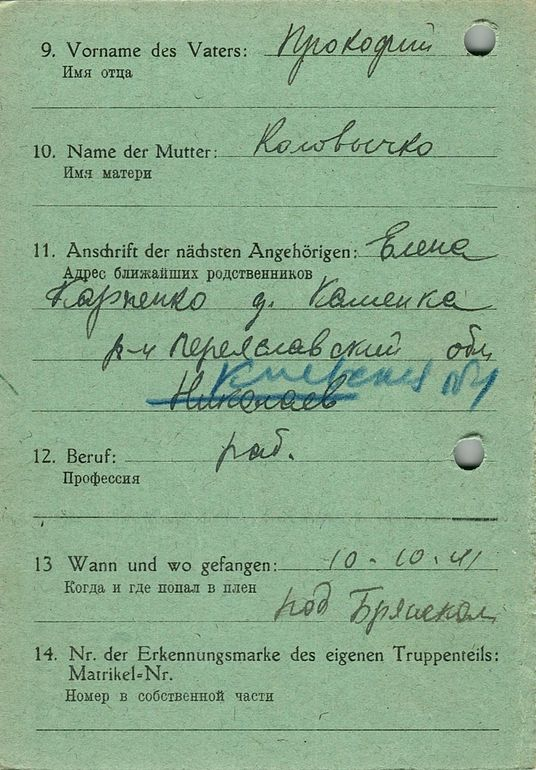 9. Vorname des Vaters: Прокофий
Имя отца
10. Name der Mutter: Коловычко
Имя матери
11. Anschrift der nächsten Angehörigen: Елена
Адрес ближайших родственников
Карпенко д. Каменка
р-н Переяславский обл
Киевская
Николаев
12. Beruf: раб.
Профессия
13 Wann und wo gefangen: 10-10-41
Когда и где попал в плен
под Брянском
14. Nr. der Erkennungsmarke des eigenen Truppenteils:
Matrikel-Nr.
Номер в собственной части